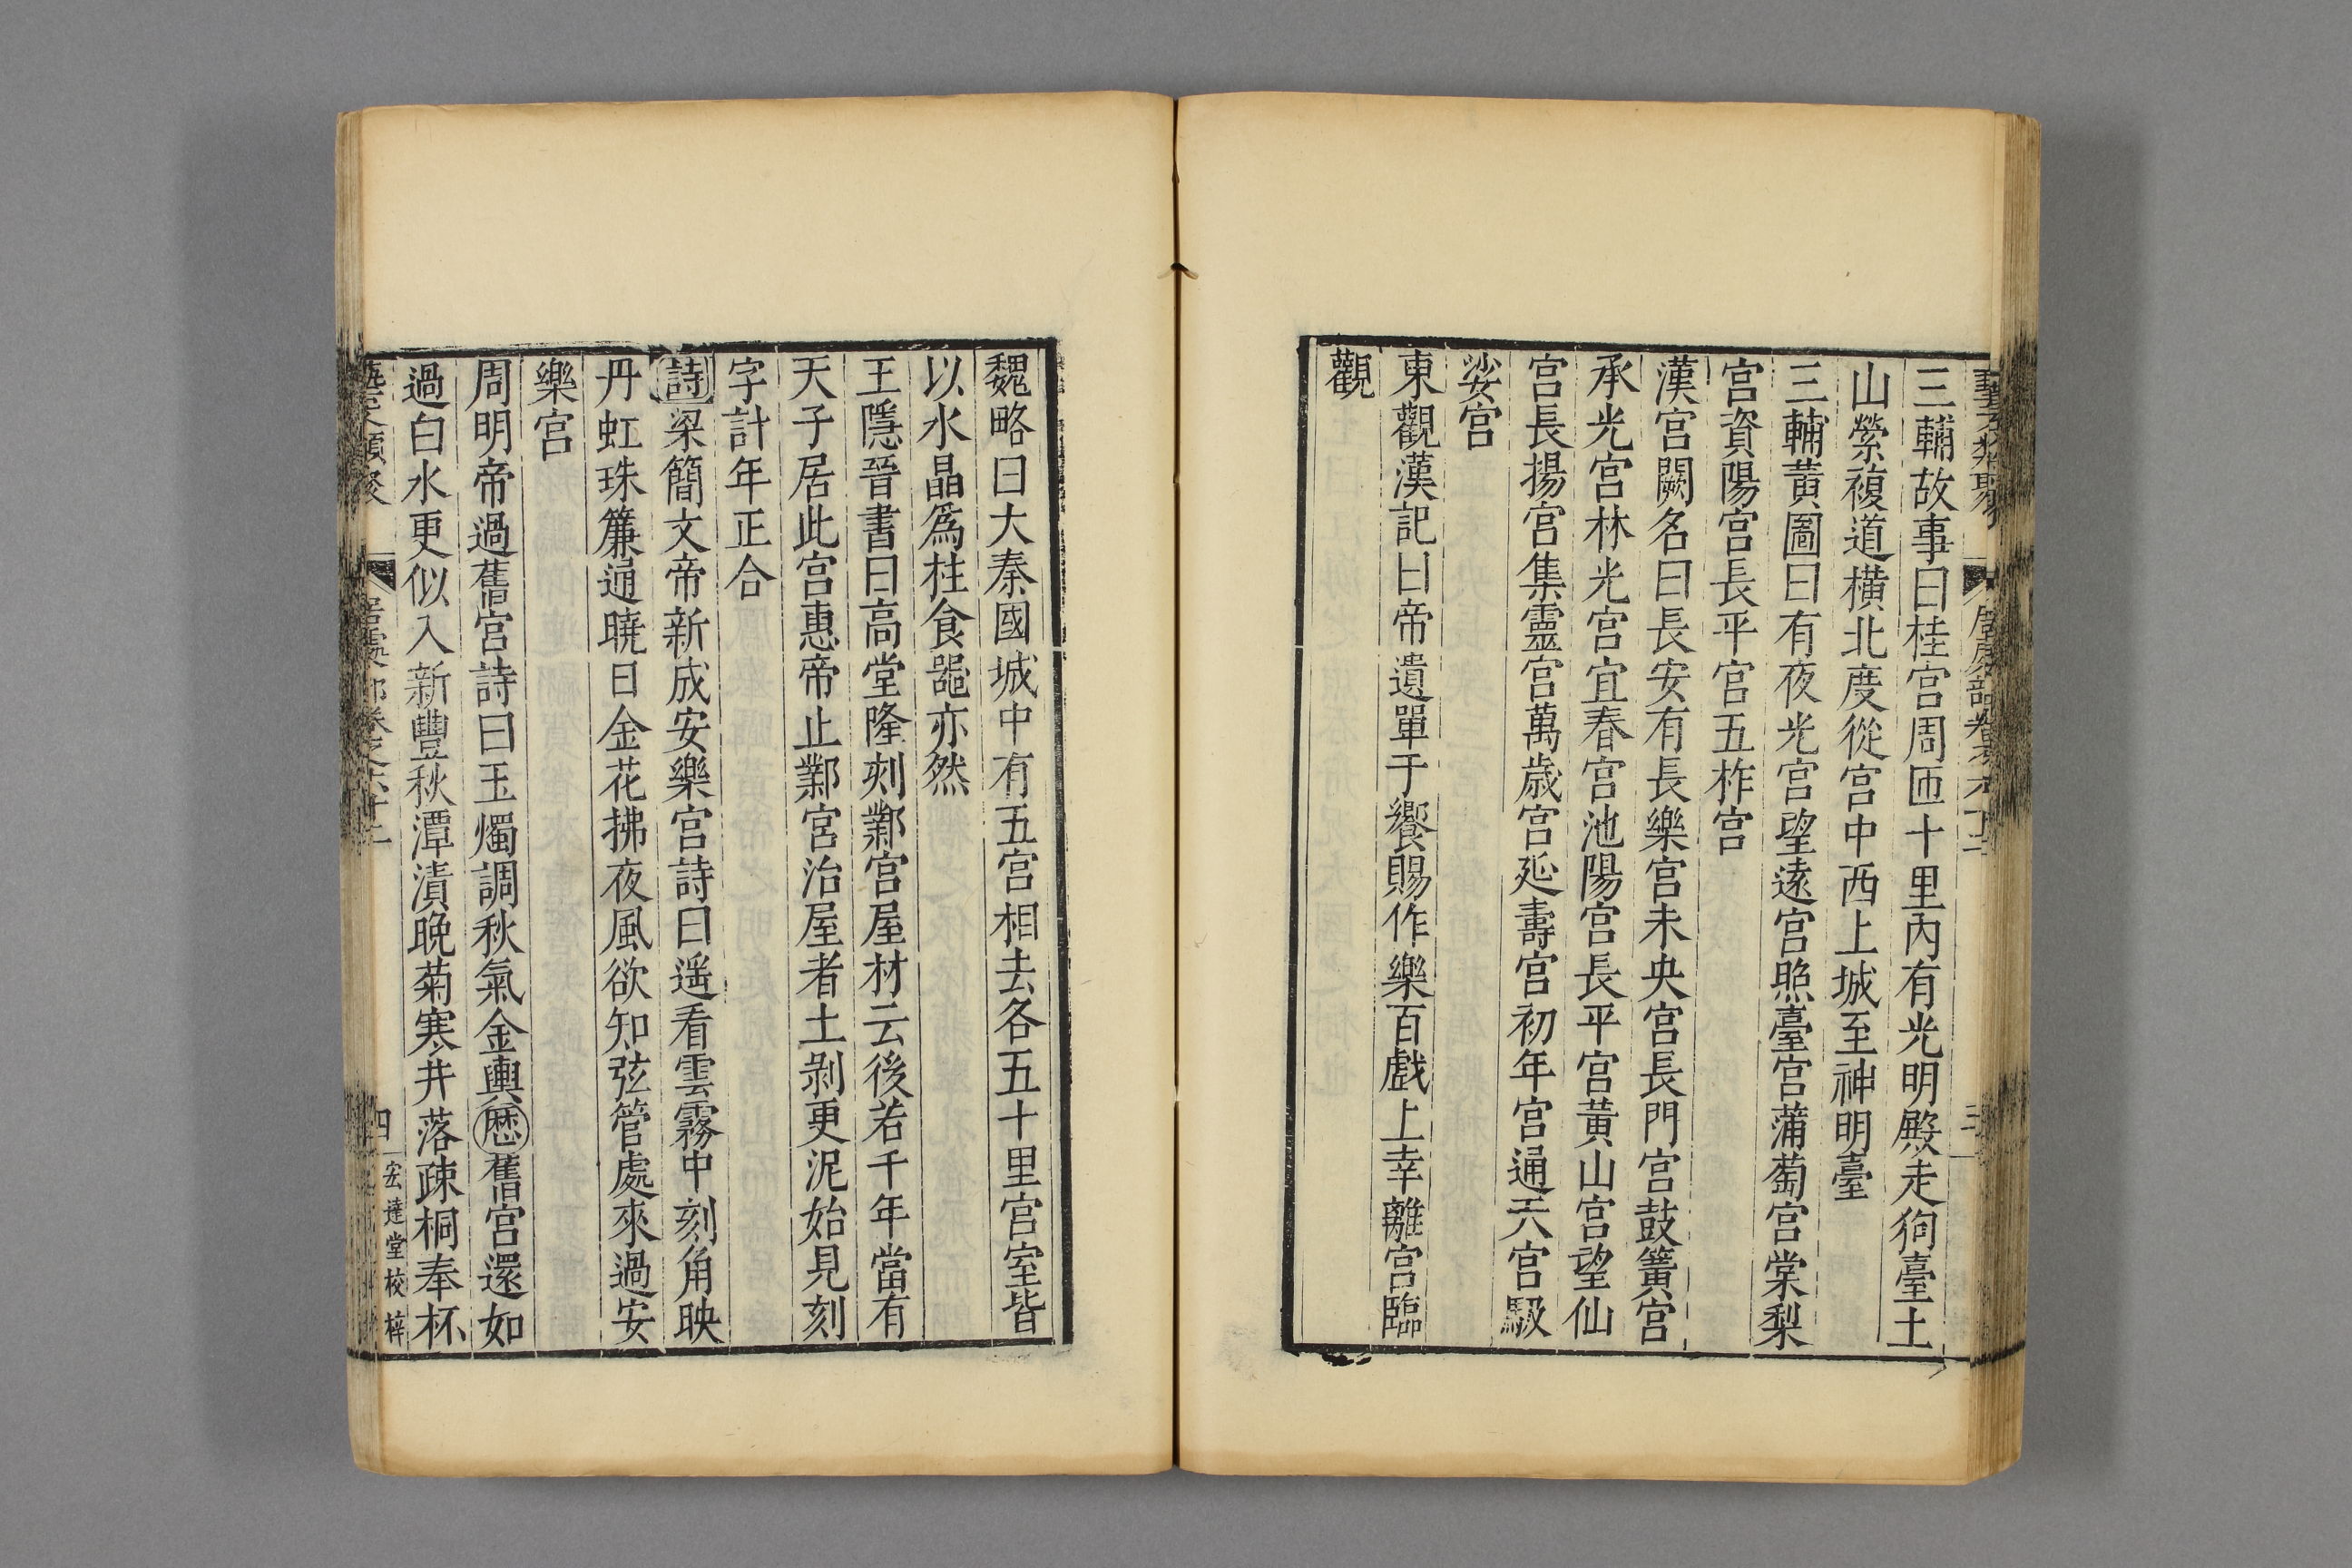 三輔故事曰桂宫周匝十里內有光明殿走狗臺土
山縈複道橫北度從宫中西上城至神明臺
三輔黄圖曰有夜光宫望遠宫照臺宫蒲萄宫棠梨
宫資陽宫長平宫五柞宫
漢宫闕名曰長安有長樂宫未央宫長門宫鼓簧宫
承光宫林光宫宜春宫池陽宫長平宫黄山宫望仙
宫長揚宫集靈宫萬歳宫延壽宫初年宫通天宫馺
娑宫
東觀漢記曰帝遺單于饗賜作樂百戲上幸離宫臨
觀
魏略曰大秦國城中有五宫相去各五十里宫室皆
以水晶爲柱食噐亦然
王隱晉書曰高堂隆刻鄴宫屋材云後若千年當有
天子居此宫惠帝止鄴宫治屋者土剥更泥始見刻
字計年正合
詩梁簡文帝新成安樂宫詩曰遥看雲霧中刻角映
丹虹珠簾通曉日金花拂夜風欲知弦管處來過安
樂宫
周明帝過舊宫詩曰玉燭調秋氣金輿歷舊宫還如
過白水更似入新豐秋潭漬晚菊寒井落疎桐奉杯
藝文類聚 居處部卷之六十二 四 宏達堂校梓